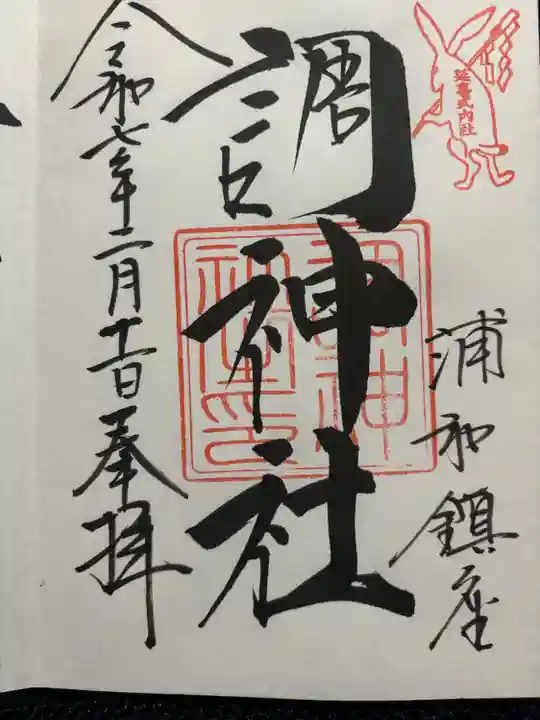 延喜式内社
浦和鎮座
調神社
調神社印
令和七年二月十一日奉拝